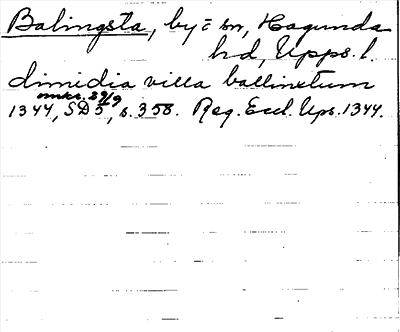 Balingsta, by i sn, Hagunda
hd, Upps. l.
dimidia villa ballinxtum
1344, SD 5, s. 358. Reg. Eccl. Ups. 1344.